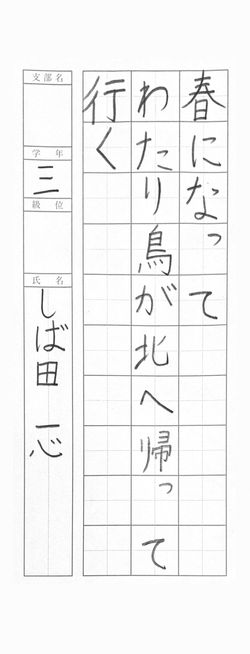 春になって
わたり鳥が北へ帰って
行く
支部名
学年
三
級位
氏名
しば田 一心